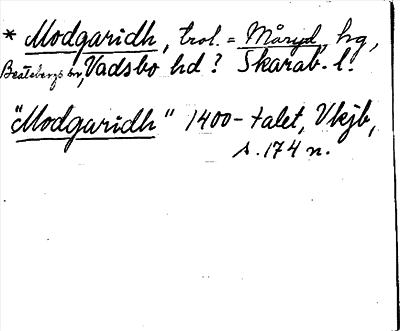 * Modgaridh, trol. = Måryd, hg,
Beatebergs sn, Vadsbo hd? Skarab. l.
"Modgaridh" 1400-talet, Vkjb,
s. 174 n.